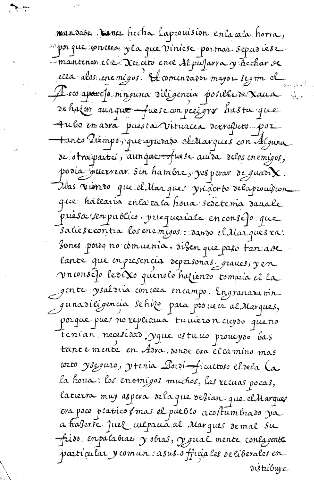 mandase. Vanes hecha la provision, en la cala horra,
por que con ella y la que viniese por mar se pudiese
mantener el exercito en el Alpuxarra y hechar de
ella a los enemigos. El comendador mayor segun el
poco aparejo ninguna diligencia posible dexava
de hazer aunque fuese con peligro hasta que
tubo en adra puesta vitualla de respeto por
tanto tiempo, que ayudado el Marques con alguna
de otra parte, aunque fuese avida de los enemigos,
podia guerrear sin hambre, y esperar de guadix.
Mas viendo que el Marques
que hallaria en la cala hora se detenia davale
priesa en publico, pe en consejo que
saliese contra los enemigos: dando el Marques ra
zones por q no convenia, dizen que paso tan ade
lante que en presencia de personas graves, y en
un consejo le dixo que no lo haziendo tomaria el la
gente y saldria con ella en campo. En granada nin
guna diligencia se hizo para proveer al Marques,
porque pues no replicava tuvieron creydo que no
tenian necesidad, y que estuvo proveydo bas
tantemente en Adra, donde era el camino mas
corto y seguro, y tenian por dificultoso el de la
la hora: los enemigos muchos, las recuas pocas,
la tierra muy aspera de la que dezian que el Marques
era poco platico / mas el pueblo acostumbrado ya
a hazerse juez culpava al Marques de mal su
frido en palabras y obras, y igual mente con la gente
particular y comun: a sus oficiales de liberales en
distribuyr